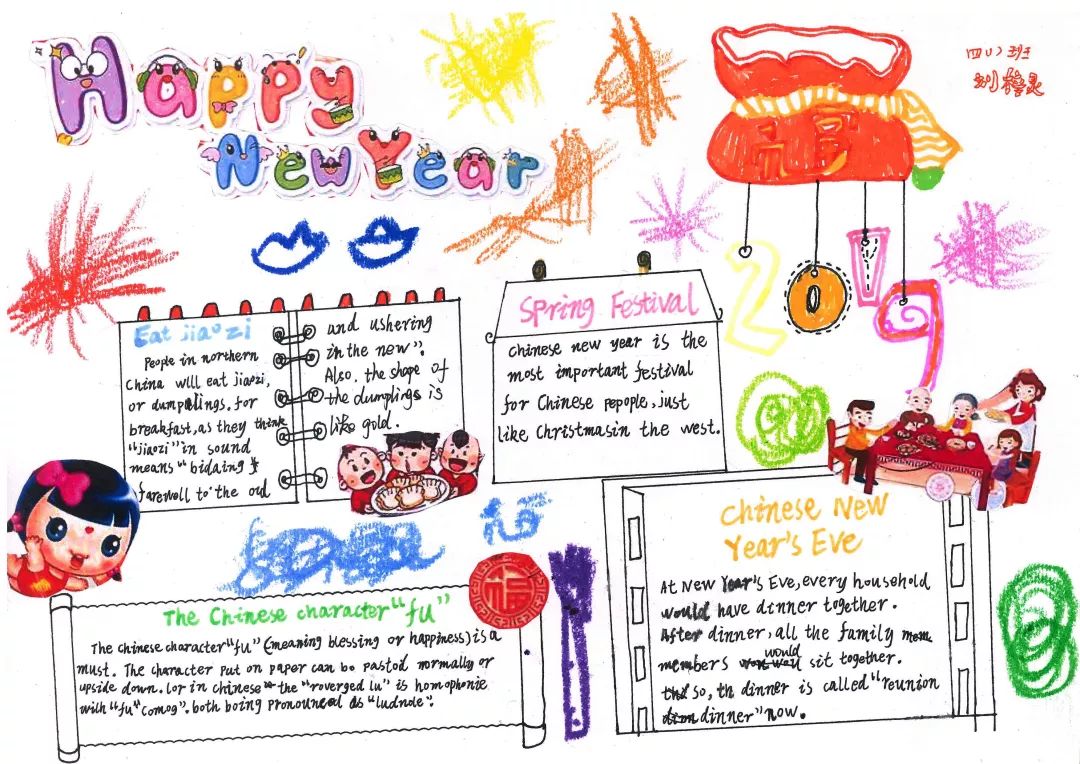 Happy
New Year
福
四(1)班
2019
Eat jiaozi
People in northern
China will eat jiaozi,
or dumplings, for
breakfast, as they think
"jiaozi" in sound
means "bidaing
farewell to the old
and ushering
in the new".
Also, the shape of
the dumplings is
like gold.
Spring Festival
Chinese new year is the
most important festival
for Chinese pepople, just
like Christmasin the west.
福
福
The Chinese character "fu"
The Chinese character "fu" (meaning blessing or happiness) is a
must. The character put on paper can be pastod normally or
upside down. for in chinese the "roverged lu" is homophonic
with "fu" comog". both boing pronouncad as "ludnole".
Chinese New
Year's Eve
At New Year's Eve, every household
would have dinner together.
After dinner, all the family
members would sit together.
so, th dinner is called "reunion
dinner" now.